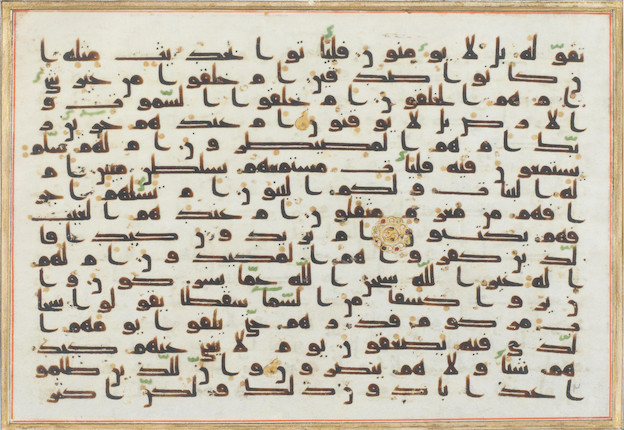 تقوله بل لا يومنون فلياتوا بحديث مثله ا
ن كانوا صدقين ام خلقوا من غير شي
ام هم الخلقون ام خلقوا السموت و
الارض بل لا يوقنون ام عندهم خزين ر
بك ام هم المصيطرون ام لهم سلم
يستمعون فيه فليات مستمعهم بسلطن مبين ام
له البنت ولكم البنون ام تسلهم اجر
ا فهم من مغرم مثقلون ام عندهم الغيب
فهم يكتبون ام يريدون كيدا فا
لذين كفروا هم المكيدون ام لهم
اله غير الله سبحن الله عما يشركون وا
ن يروا كسفا من السما سقطا يقولوا سحا
ب مركوم فذرهم حتى يلقوا يومهم ا
لذي فيه يصعقون يوم لا يغني عنهم كيد
هم شيا ولا هم ينصرون وان للذين ظلمو
ا عذابا دون ذلك ولكن اكثر